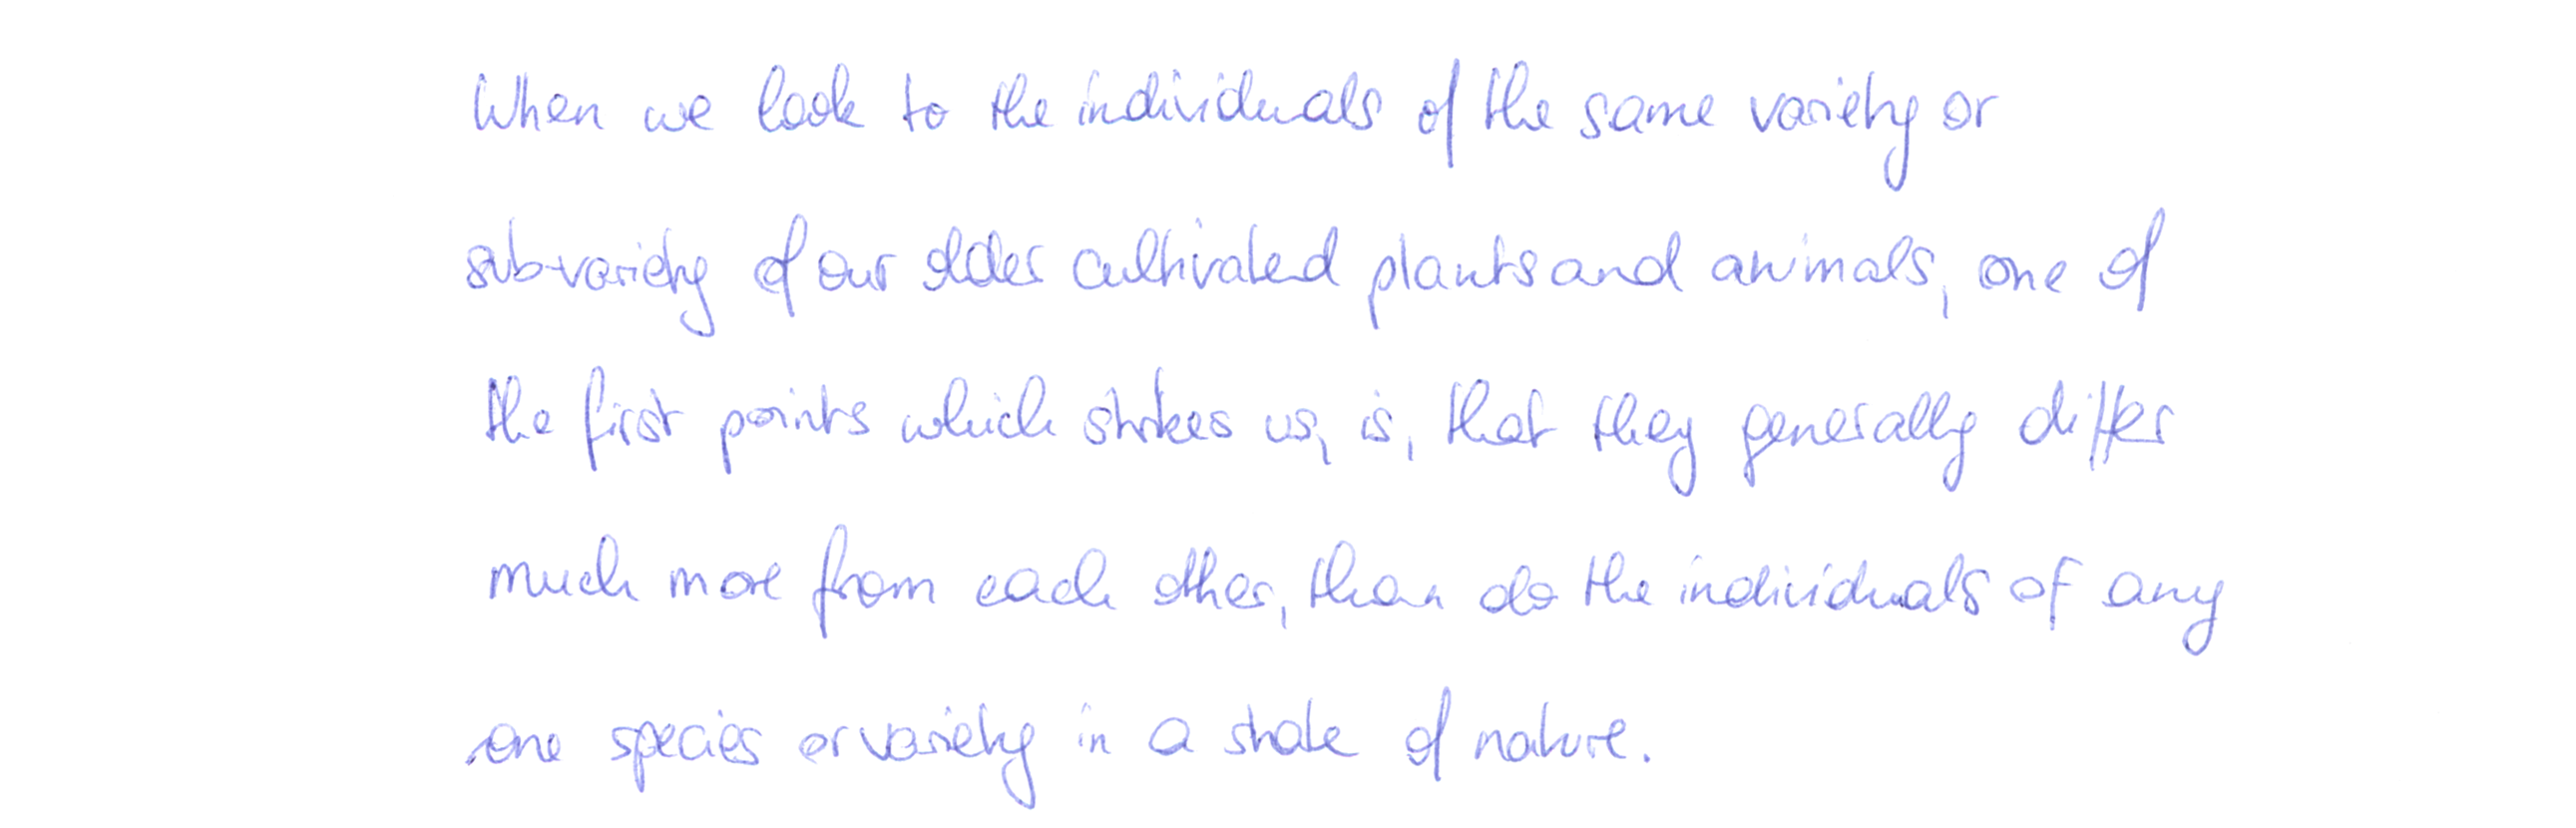 When we look to the individuals of the same variety or
sub-variety of our older cultivated plants and animals, one of
the first points which strikes us, is, that they generally differ
much more from each other, than do the individuals of any
one species or variety in a state of nature.